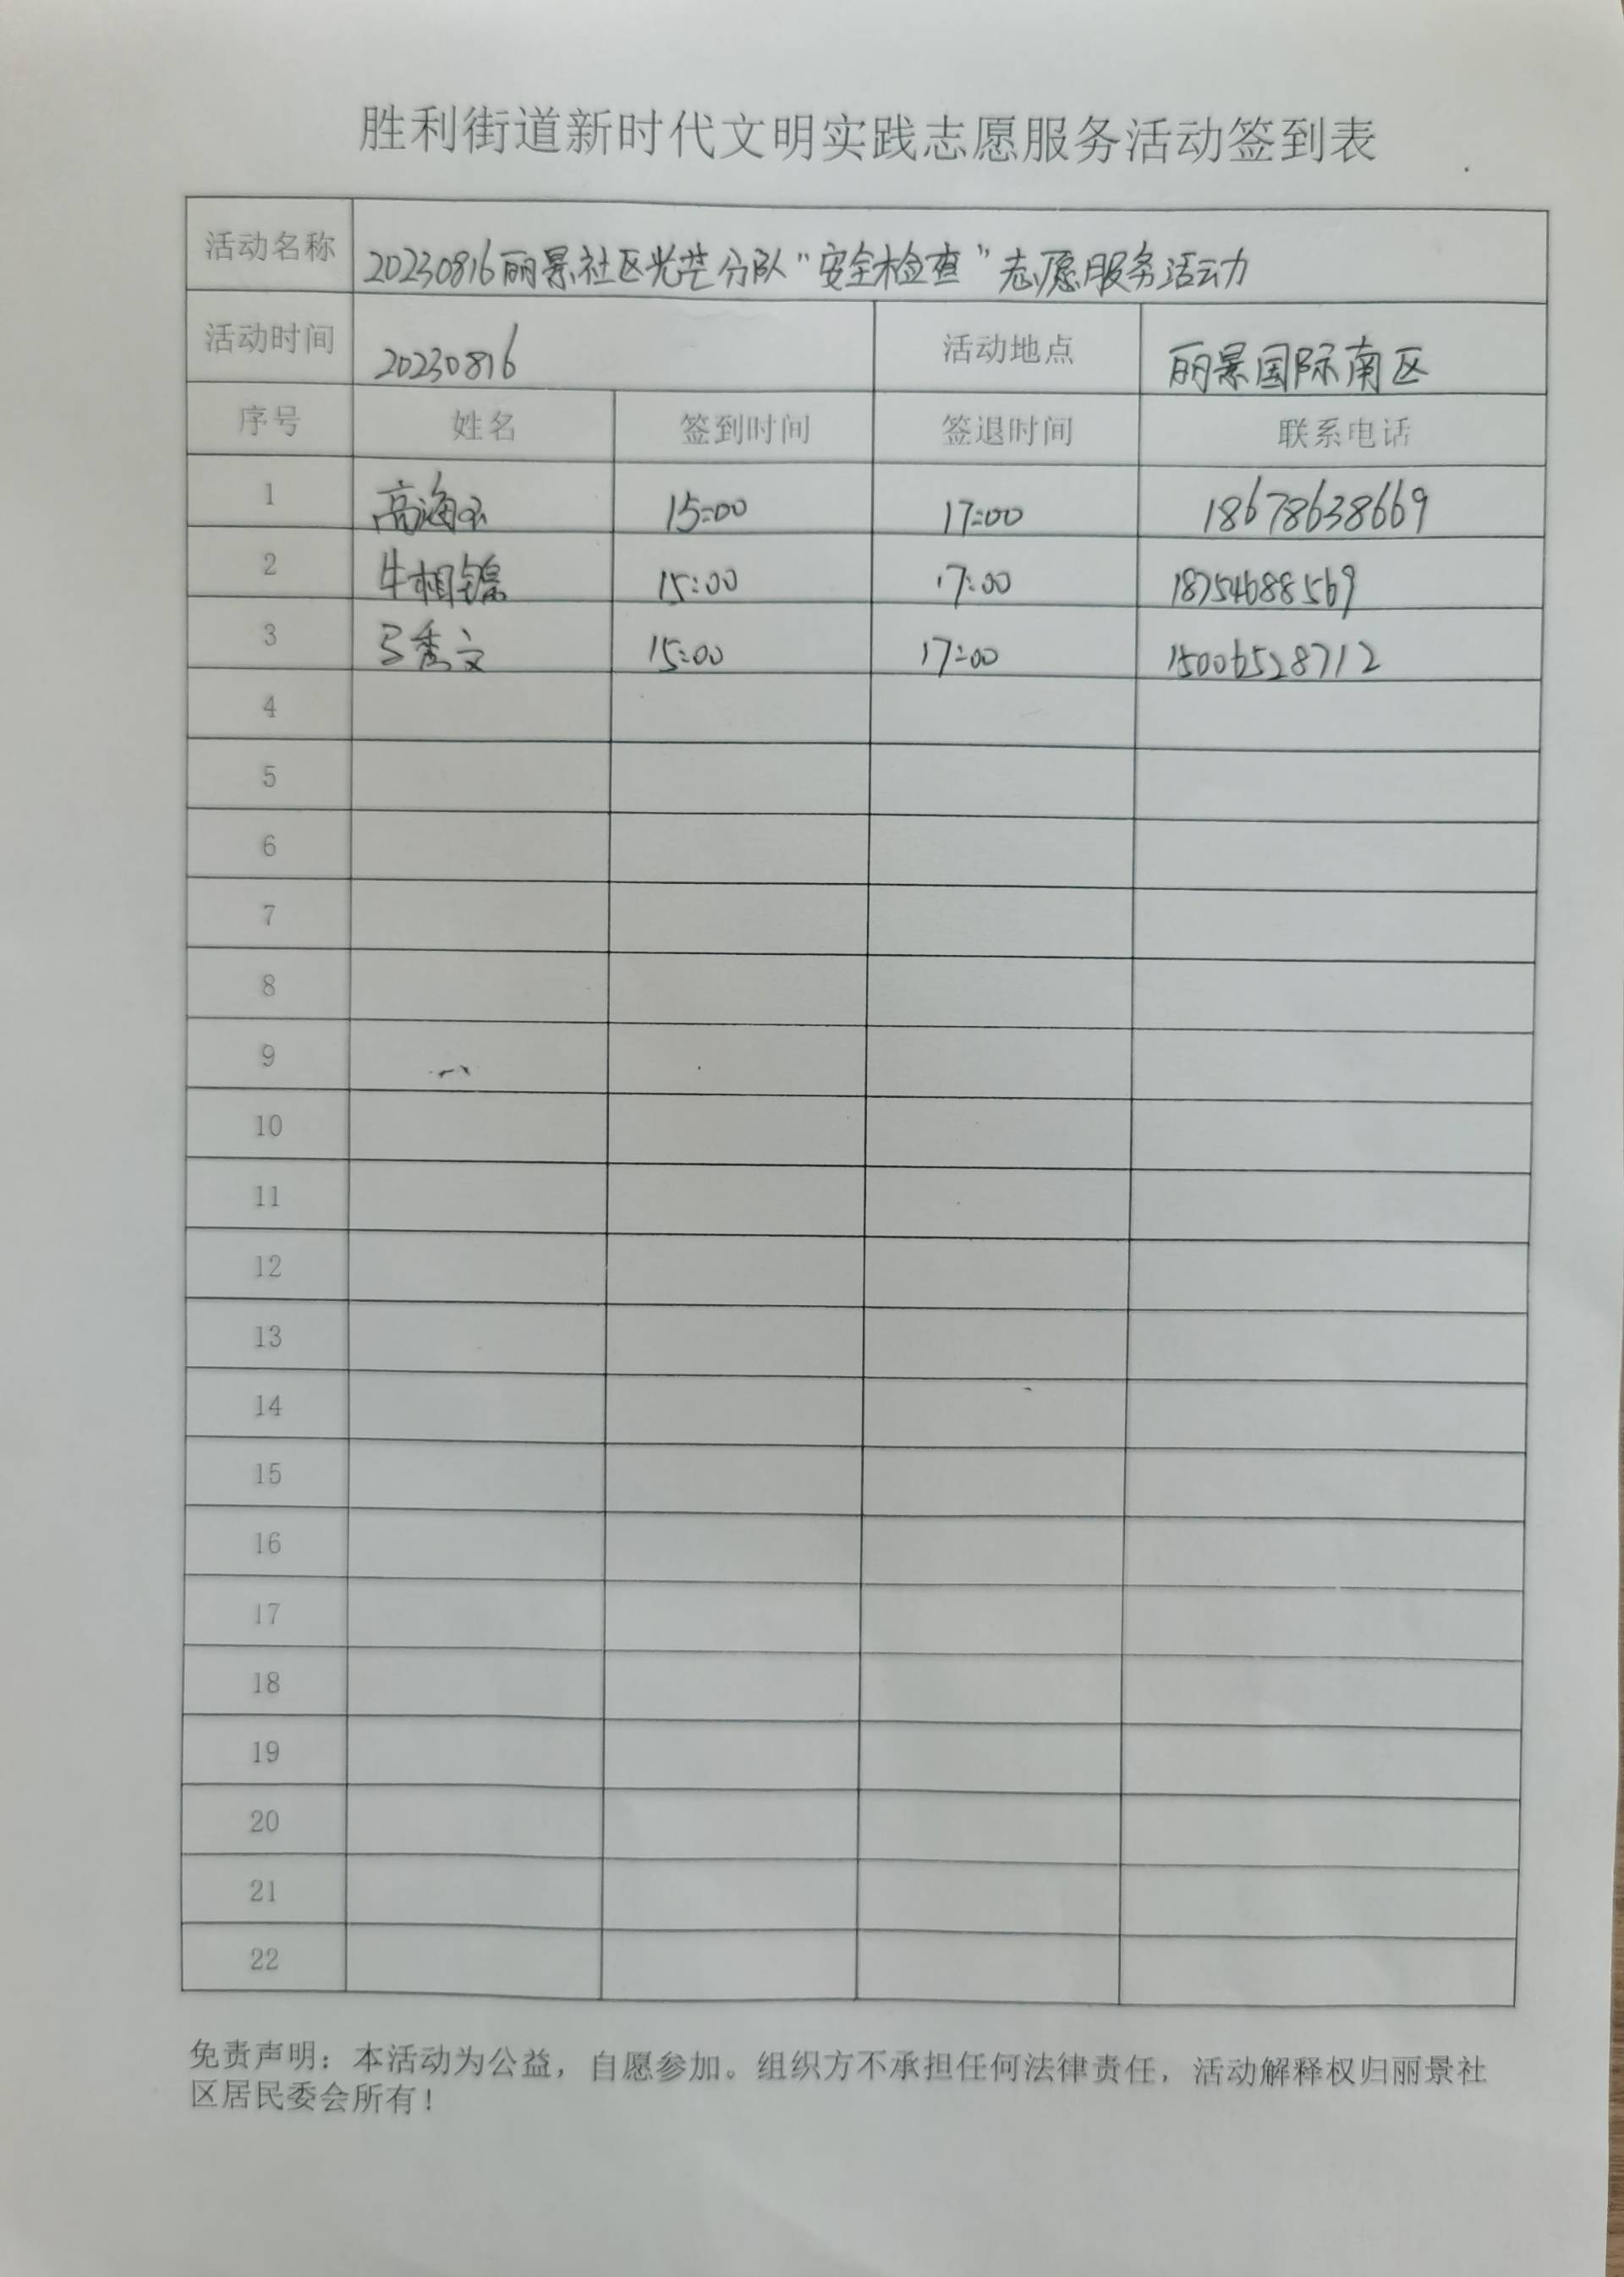 胜利街道新时代文明实践志愿服务活动签到表
活动名称 20230816丽景社区光芒分队“安全检查”志愿服务活动
活动时间 20230816 活动地点 丽景国际南区
序号 姓名 签到时间 签退时间 联系电话
1 高海 15:00 17:00 18678638669
2 牛相锦 15:00 17:00 18754688569
3 马秀文 15:00 17:00 15006528712
4
5
6
7
8
9
10
11
12
13
14
15
16
17
18
19
20
21
22
免责声明：本活动为公益，自愿参加。组织方不承担任何法律责任，活动解释权归丽景社
区居民委会所有！